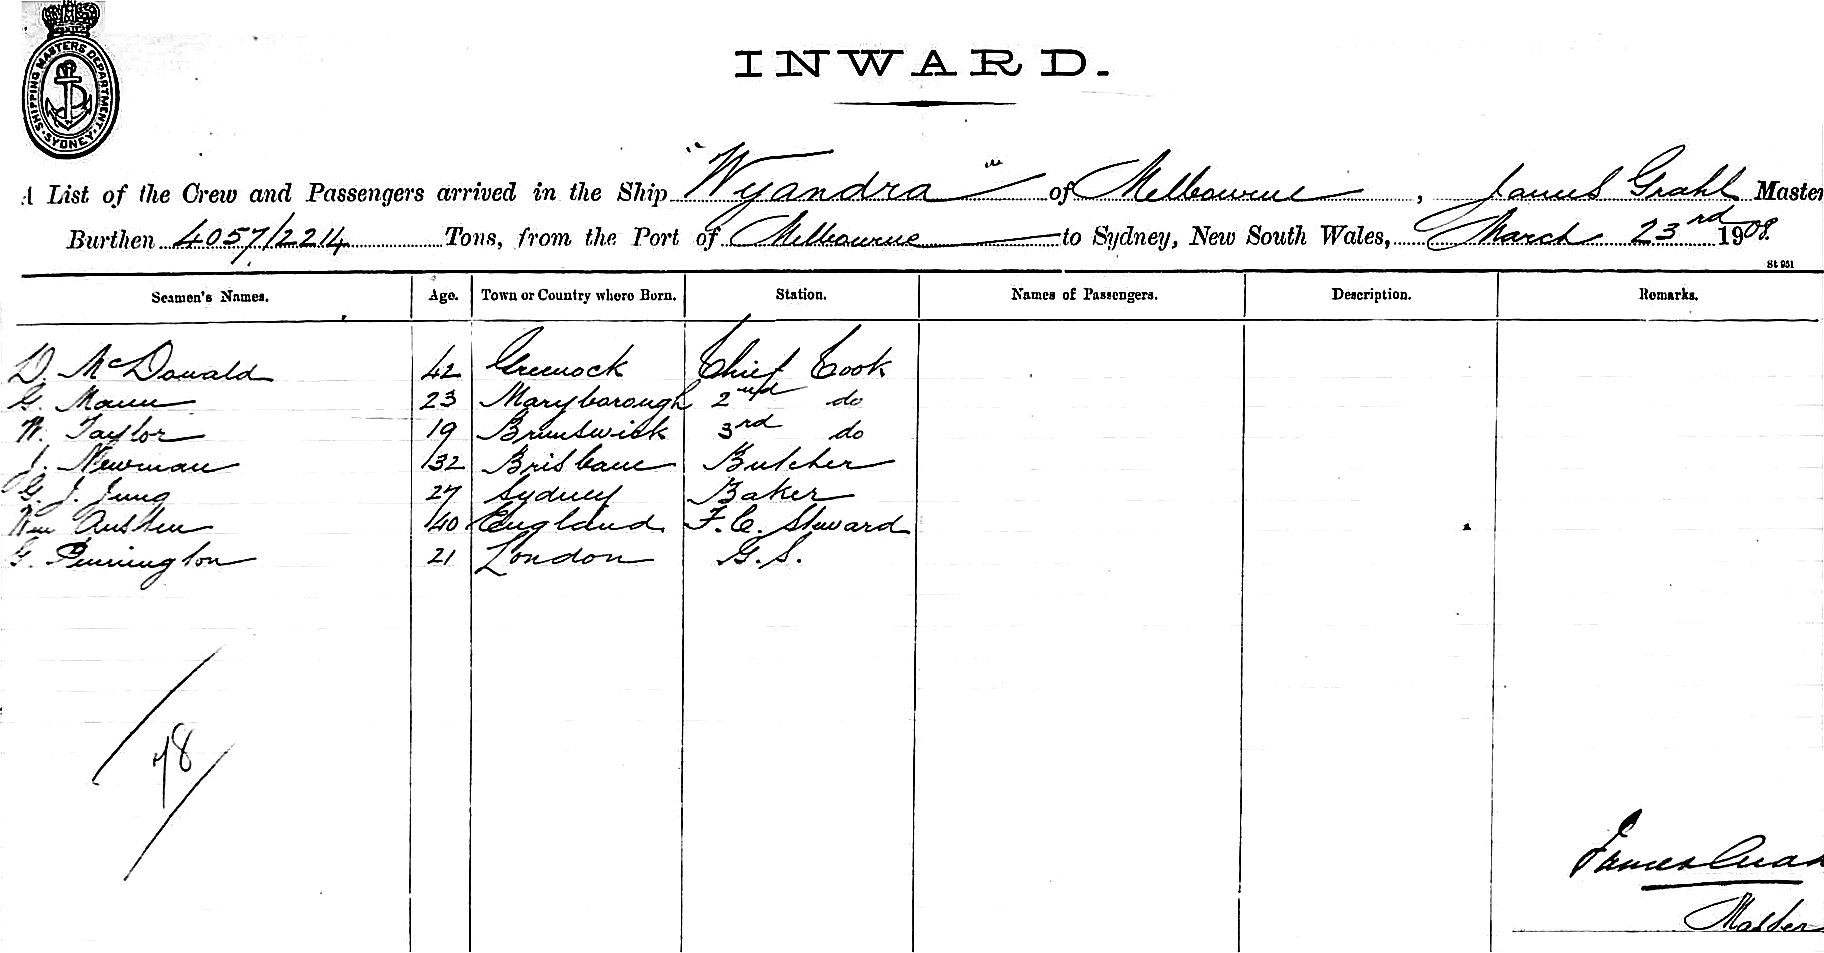 SHIPPING MASTERS DEPARTMENT · SYDNEY ·
INWARD.
A List of the Crew and Passengers arrived in the Ship "Wyandra" of Melbourne, James Grahl Master
Burthen 4057/2214 Tons, from the Port of Melbourne to Sydney, New South Wales, March 23rd 1908.
St 951
Seamen's Names. Age. Town or Country where Born. Station. Names of Passengers. Description. Remarks.
D. McDonald 42 Greenock Chief Cook
G. Mann 23 Maryborough 2nd do
W. Taylor 19 Brunswick 3rd do
J. Newman 32 Brisbane Butcher
G. J. Jung 27 Sydney Baker
Wm Austen 40 England F. C. Steward
G. Pennington 21 London G.S.
78
James
Master